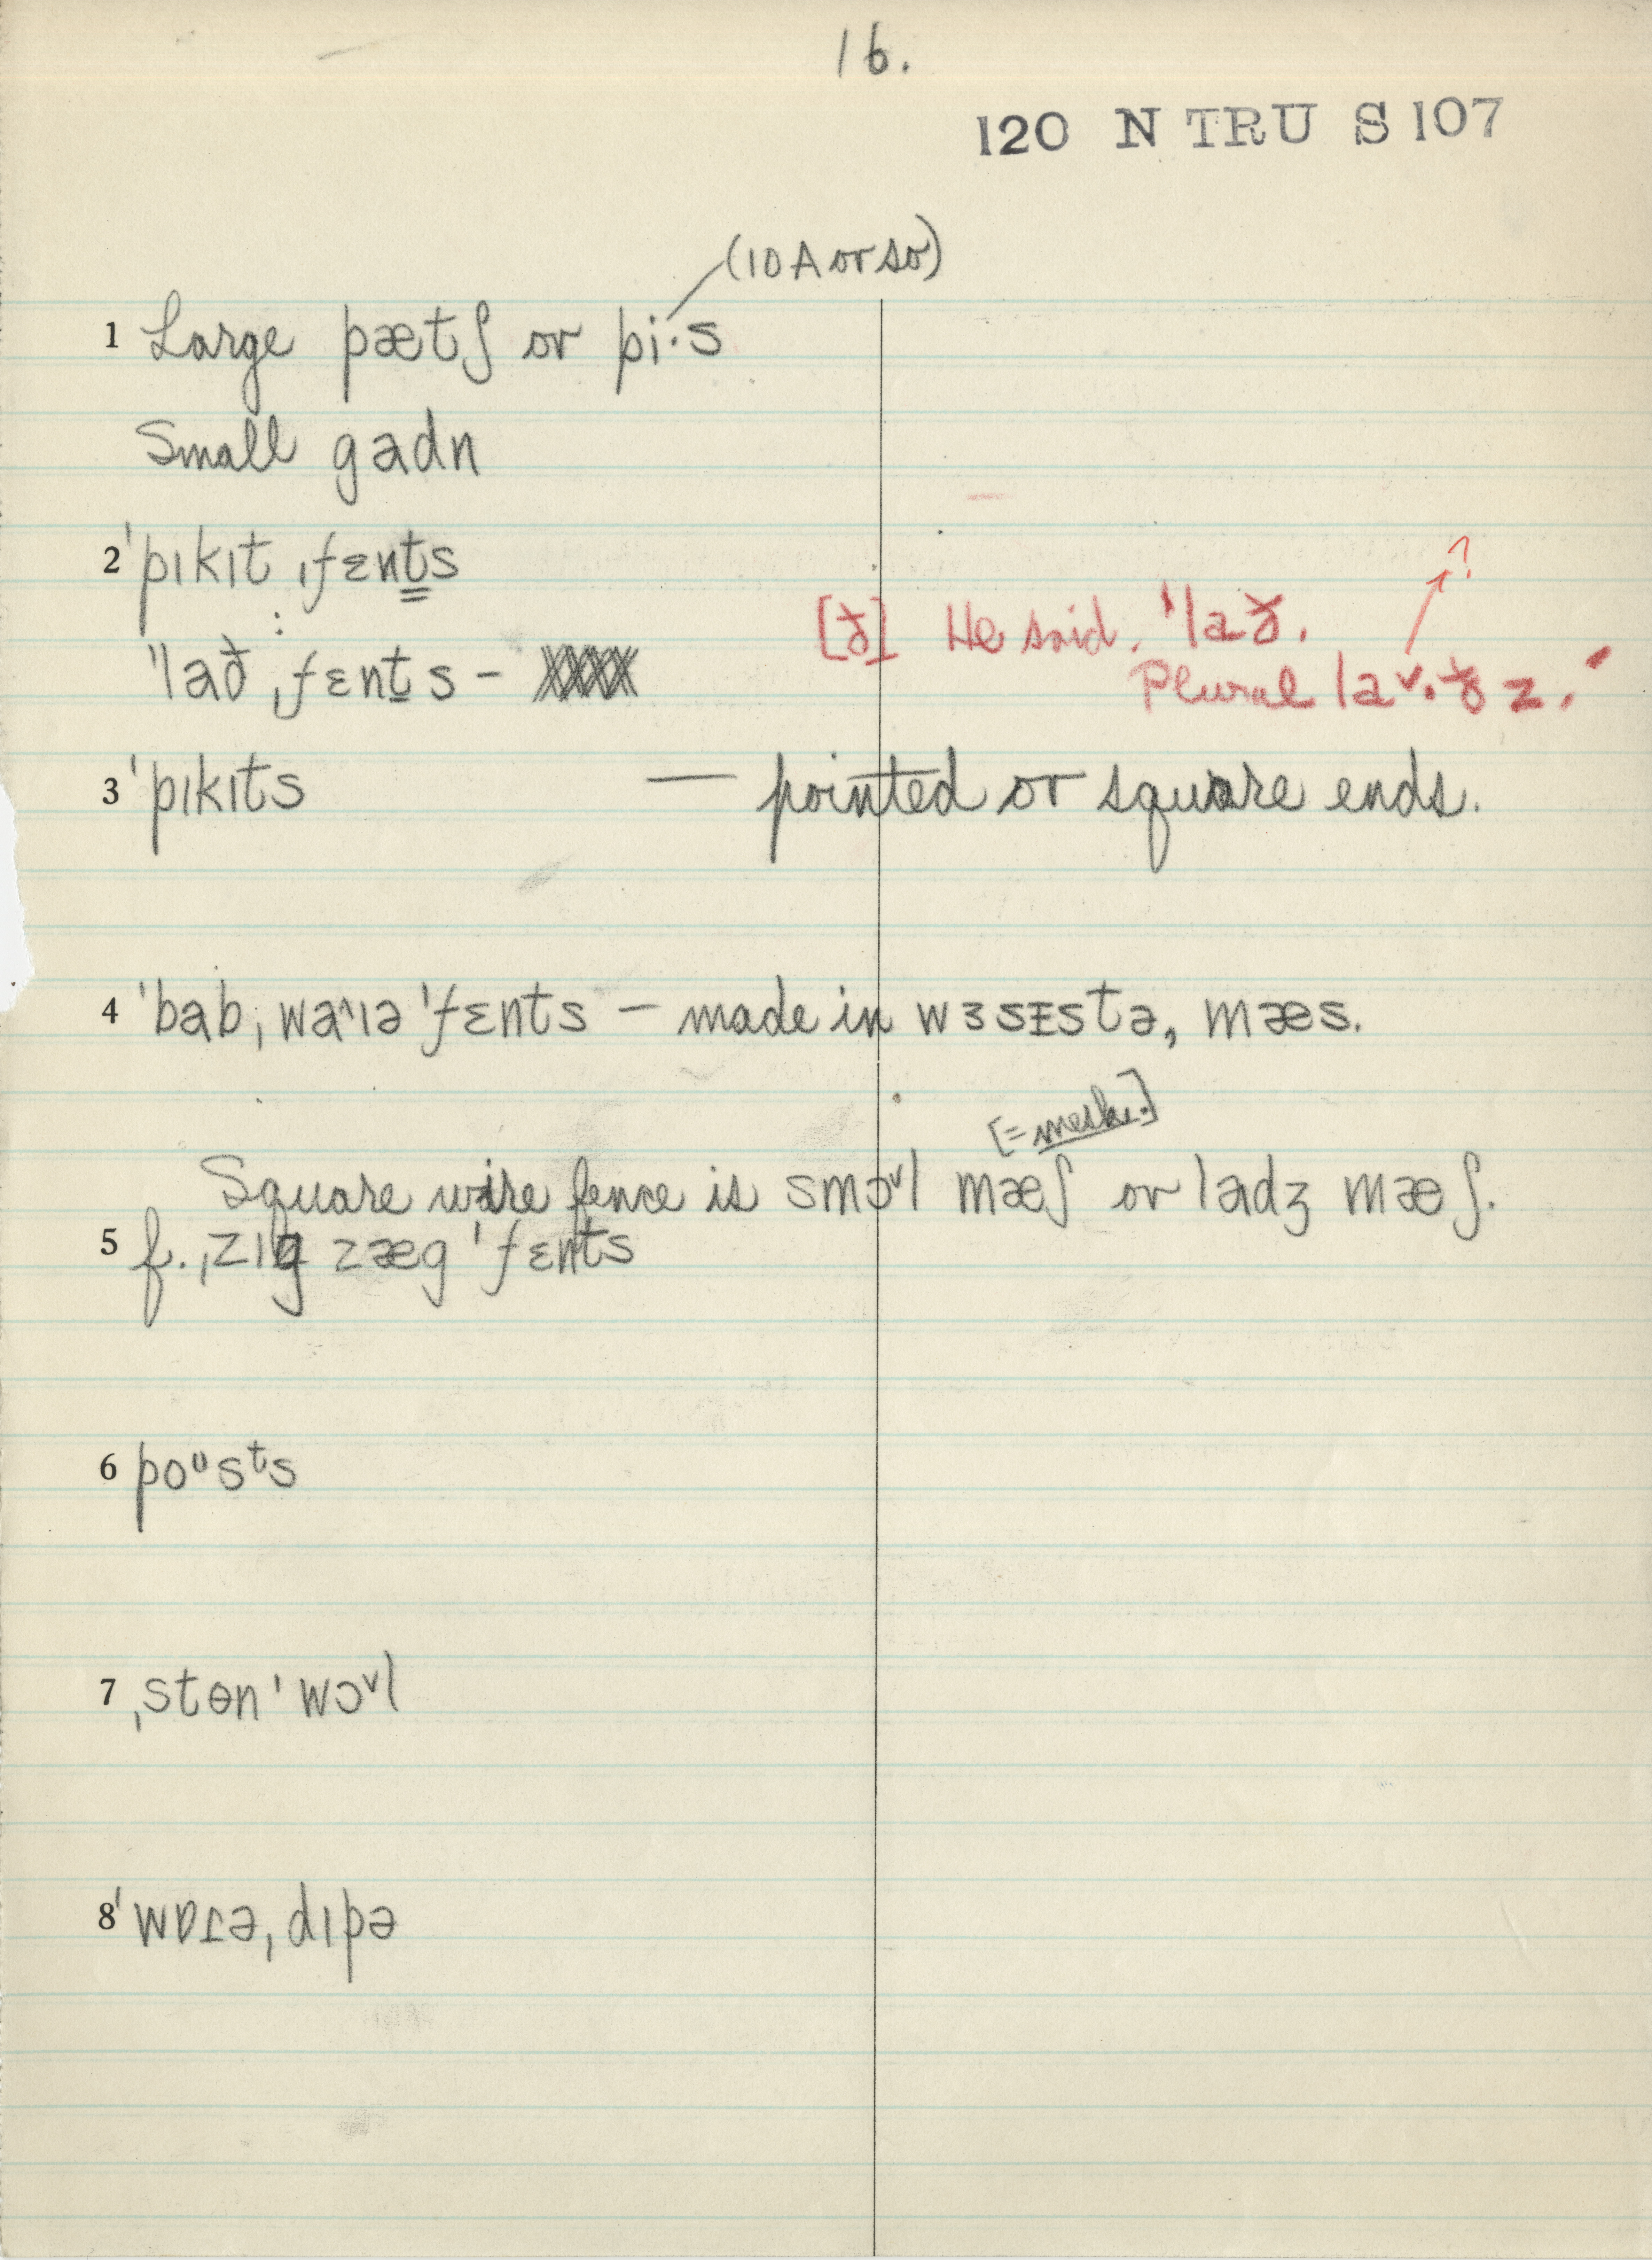 16.
120 N TRU S 107
(10 A or so)
1 Large pætʃ or pi·s
Small gadn
2 ˈpɪkɪt ˌfɛnts
[ð] He said. ˈlað. ?
ˈlað ˌfɛnts –
Plural laˇ·ðz.
3 ˈpɪkɪts — pointed or square ends.
4 ˈbabˌwaɪə ˈfɛnts – made in wɜsɪstə, mæs.
[= mesh.]
Square wire fence is smɔˇl mæʃ or ladʒ mæʃ.
5 f. ˌzɪg zæg ˈfɛnts
6 poᶷsᵗs
7 ˌstɵn ˈwɔˇl
8 ˈwɒɹəˌdɪpə